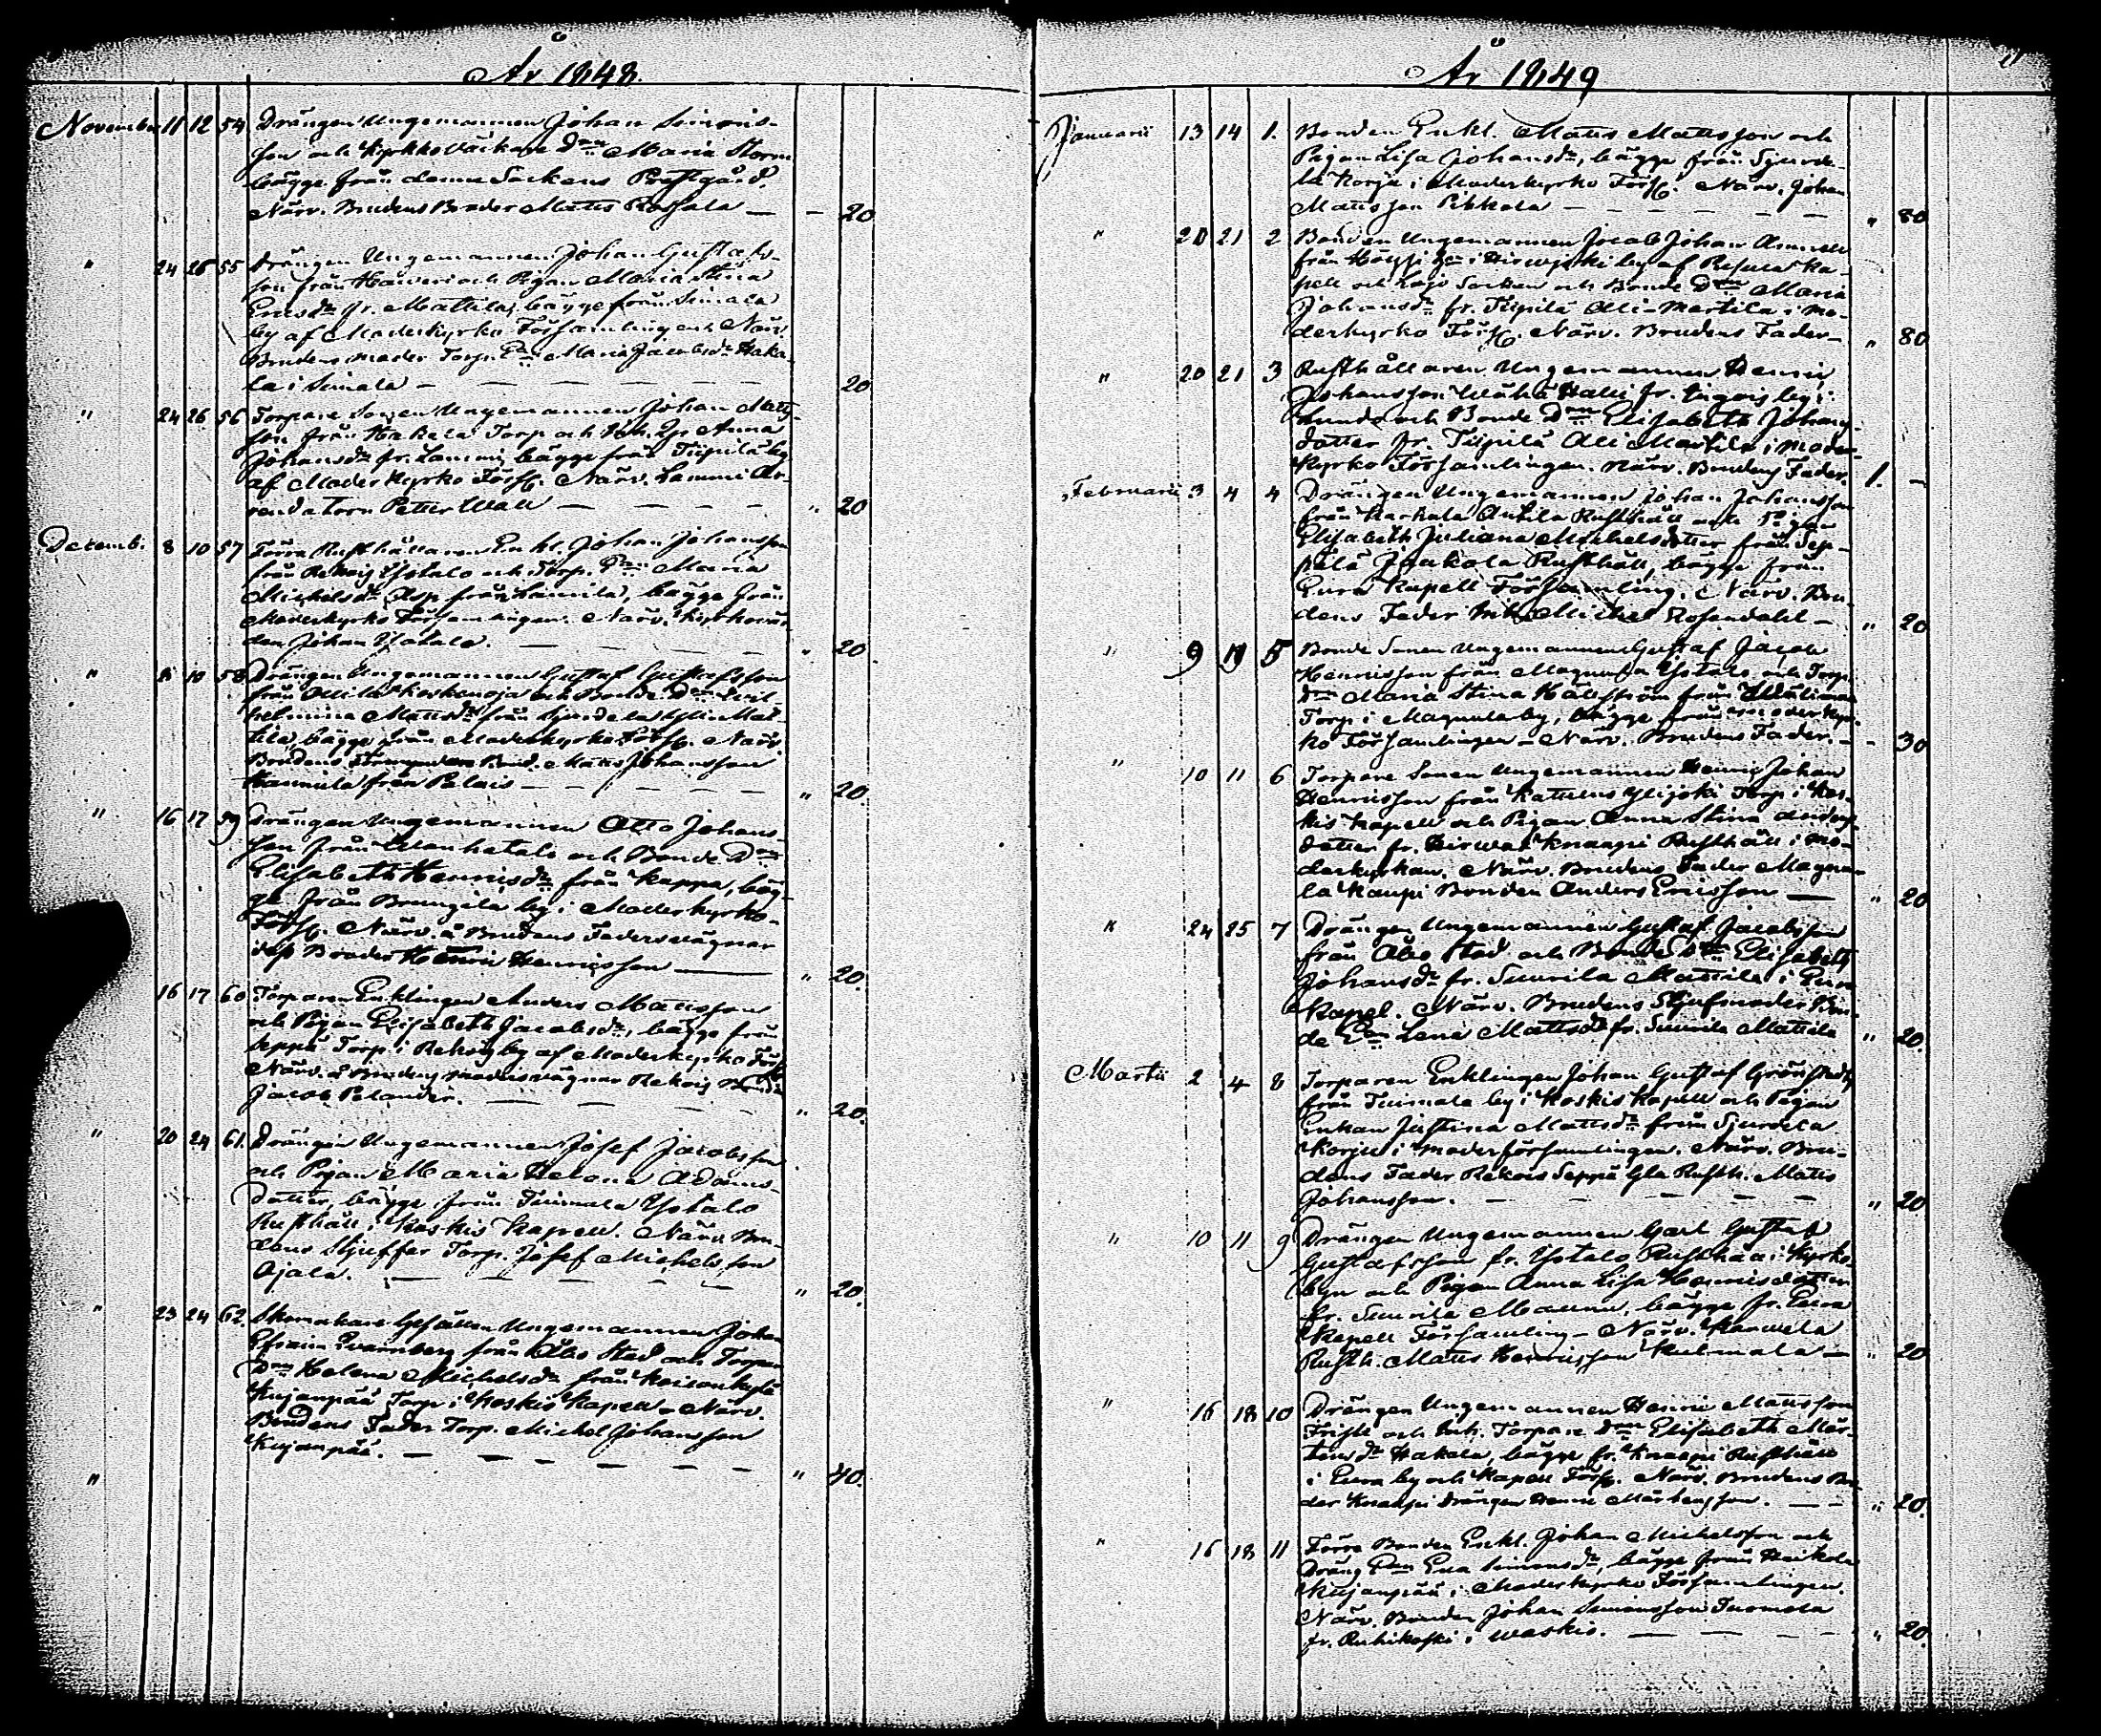 År 1848.
November 11 12 54 Drängen Ungemannen Johan Simons-
son och Kyrkoväckare Dn Maria Storm
bägge från denna Sockens Prestgård.
Närv. Brudens Broder Matts Rossala — - 20
" 24 26 55 Drängen Ungemannen Johan Gustafs-
son från och Pigan Maria Stina
Ericsdr fr. Mattila, bägge från Simala
by af Moderkyrko Församlingen Närv.
Brudens moder Torp. Maria Jacobsdr Haka-
la i Simala — 20
" 24 26 56 Torpare Sonen Ungemannen Johan Matts-
son från Hakala Torp och Anna
Johansdr fr. Lammi, bägge från Tiipilä by
af Moderkyrko Förs. Närv. Lammi Ar-
rendatorn Petter Wall — " 20
Decemb. 8 10 57 Förra Rusthållaren Enkl. Johan Johansson
från Rekoij Ystalo och Torp. Maria
Michelsdr Asp från Lamila, bägge från
Moderkyrko Församlingen. Närv. Kyrkovär-
den Johan Ystalo. — " 20
" 8 10 58 Drängen Ungemannen Gustaf Gustafsson
från Koskenoja och Bonde Dn Wil-
helmina Mattsdr från Sjurdela
tila, bägge från Moderkyrko Förs. Närv.
Brudens Bond. Matts Johansson
från Palais — " 20.
" 16 17 59 Drängen Ungemannen Otto Johans-
son från Wanhatalo och Bonde Dn
Elisabeth Henricsdr från Kappa, bäg-
ge från Brungila by i Moderkyrko-
Förs. Närv. å Brudens Faders vägnar
dess Broder Henric Henricsson — " 20.
16 17 60 Torparen Enklingen Anders Mattsson
och Pigan Elisabeth Jacobsdr, bägge från
Seppä Torp i Rekoij by af Moderkyrko Förs.
Närv. å Brudens moders vägnar Rekoij
Jacob Pelander. — " 20.
" 20 24 61. Drängen Ungemannen Josef Jacobsson
och Pigan Maria Helena Adams-
dotter, bägge från Tuimala Ystalo
Rusthåll i Koskis Kapell. Närv. Bru-
dens Stjuffar Torp. Josef Michelsson
Ojala. — " 20.
" 23 24 62 Skomakare Gesällen Ungemannen Johan
Efraim Qvarnberg från Åbo Stad och Torpare
Dn Helena Michelsdr från Koivunkylä
Kujanpää Torp i Koskis Kapell. Närv.
Brudens Fader Torp. Michel Johansson
Kujanpää. —
" " 40.
År 1849
Januarii 13 14 1. Bonden Enkl. Matts Mattsson och
Pigan Lisa Johansdr, bägge från Sjurde-
la Korju i Moderkyrko Förs. Närv. Johan
Mattsson Pikkala — " 80
" 20 21 2 Bonden Ungemannen Jacob Johan
från by af Ka-
pell och Lojo Socken och Bonde Dn Maria
Johansdr fr. Tiipilä Alli-Martila i Mo-
derkyrko Förs. Närv. Brudens Fader — " 80
" 20 21 3 Rusthållaren Ungemannen Henric
Johansson Wähä Halli fr. by i
Lundo och Bonde Dn Elisabeth Johans-
dotter fr. Tiipilä Alli Martila i Moder-
kyrko Församlingen. Närv. Brudens Fader. 1. -
Februarii 3 4 4 Drängen Ungemannen Johan Johansson
från Karhula Antila Rusthåll och Pigan
Elisabeth Juliana Michelsdotter från Sep-
pälä Jaakola Rusthåll, bägge från
Eura Kapell Församling. Närv. Bru-
dens Fader Michel Rosendahl — " 20
" 9 11 5 Bonde Sonen Ungemannen Gustaf Jacob
Henricsson från Magnula Ystalo och Torp.
Dn Maria Stina Hällström från
Torp i Magnula by, bägge från Moderkyr-
ko Församlingen — Närv. Brudens Fader. — - 30
" 10 11 6 Torpare Sonen Ungemannen Henric Johan
Henricsson från Kattelus Ylijoki Torp i Kos-
kis Kapell och Pigan Anna Stina Anders-
dotter fr. Knaapi Rusthåll i Mo-
derkyrkan. Närv. Brudens Fader Magnu-
la Kaupi Bonden Anders Ericsson — " 20
" 24 25 7 Drängen Ungemannen Gustaf Jacobsson
från Åbo Stad och Bonde Dn Elisabeth
Johansdr fr. Suurila Mattila i Eura
Kapel. Närv. Brudens Stjufmoder Bon-
de Lena Mattsdr fr. Suurila Mattila " 20.
Martii 2 4 8 Torparen Enklingen Johan Gustaf Grönstedt
från Tuimala by i Koskis Kapell och Pigan
Enkan Justina Mattsdr från Sjurdela
Korju i moderförsamlingen. Närv. Bru-
dens Fader Rekois Seppä Gla Rusth. Matts
Johansson. — " 20
" 10 11 9 Drängen Ungemannen Carl Gustaf
Gustafsson fr. Ystalo Rusthåll i Kyrko-
byn och Pigan Anna Lisa Henricsdotter
fr. Suurila Mannu, bägge fr. Eura
Kapell Församling — Närv. Karwela
Rusth. Matts Henricsson Kulmala — " 20
" 16 18 10 Drängen Ungemannen Henric Mattsson
Frisk och Torpare Dn Elisabeth Mår-
tensdr Hakala, bägge fr. Knaapi Rusthåll
i Eura by och Kapell Förs. Närv. Brudens Bro-
der Knaapi drängen Henric Mårtensson. — " 20.
" 16 18 11 Förra Bonden Enkl. Johan Michelsson och
Dräng Eva Simonsdr, bägge från Heikola
Kujanpää i Moderkyrko Församlingen.
Närv. Bonden Johan Simonsson Tuomola
fr. Ruhikoski i Waskio. — " 20.